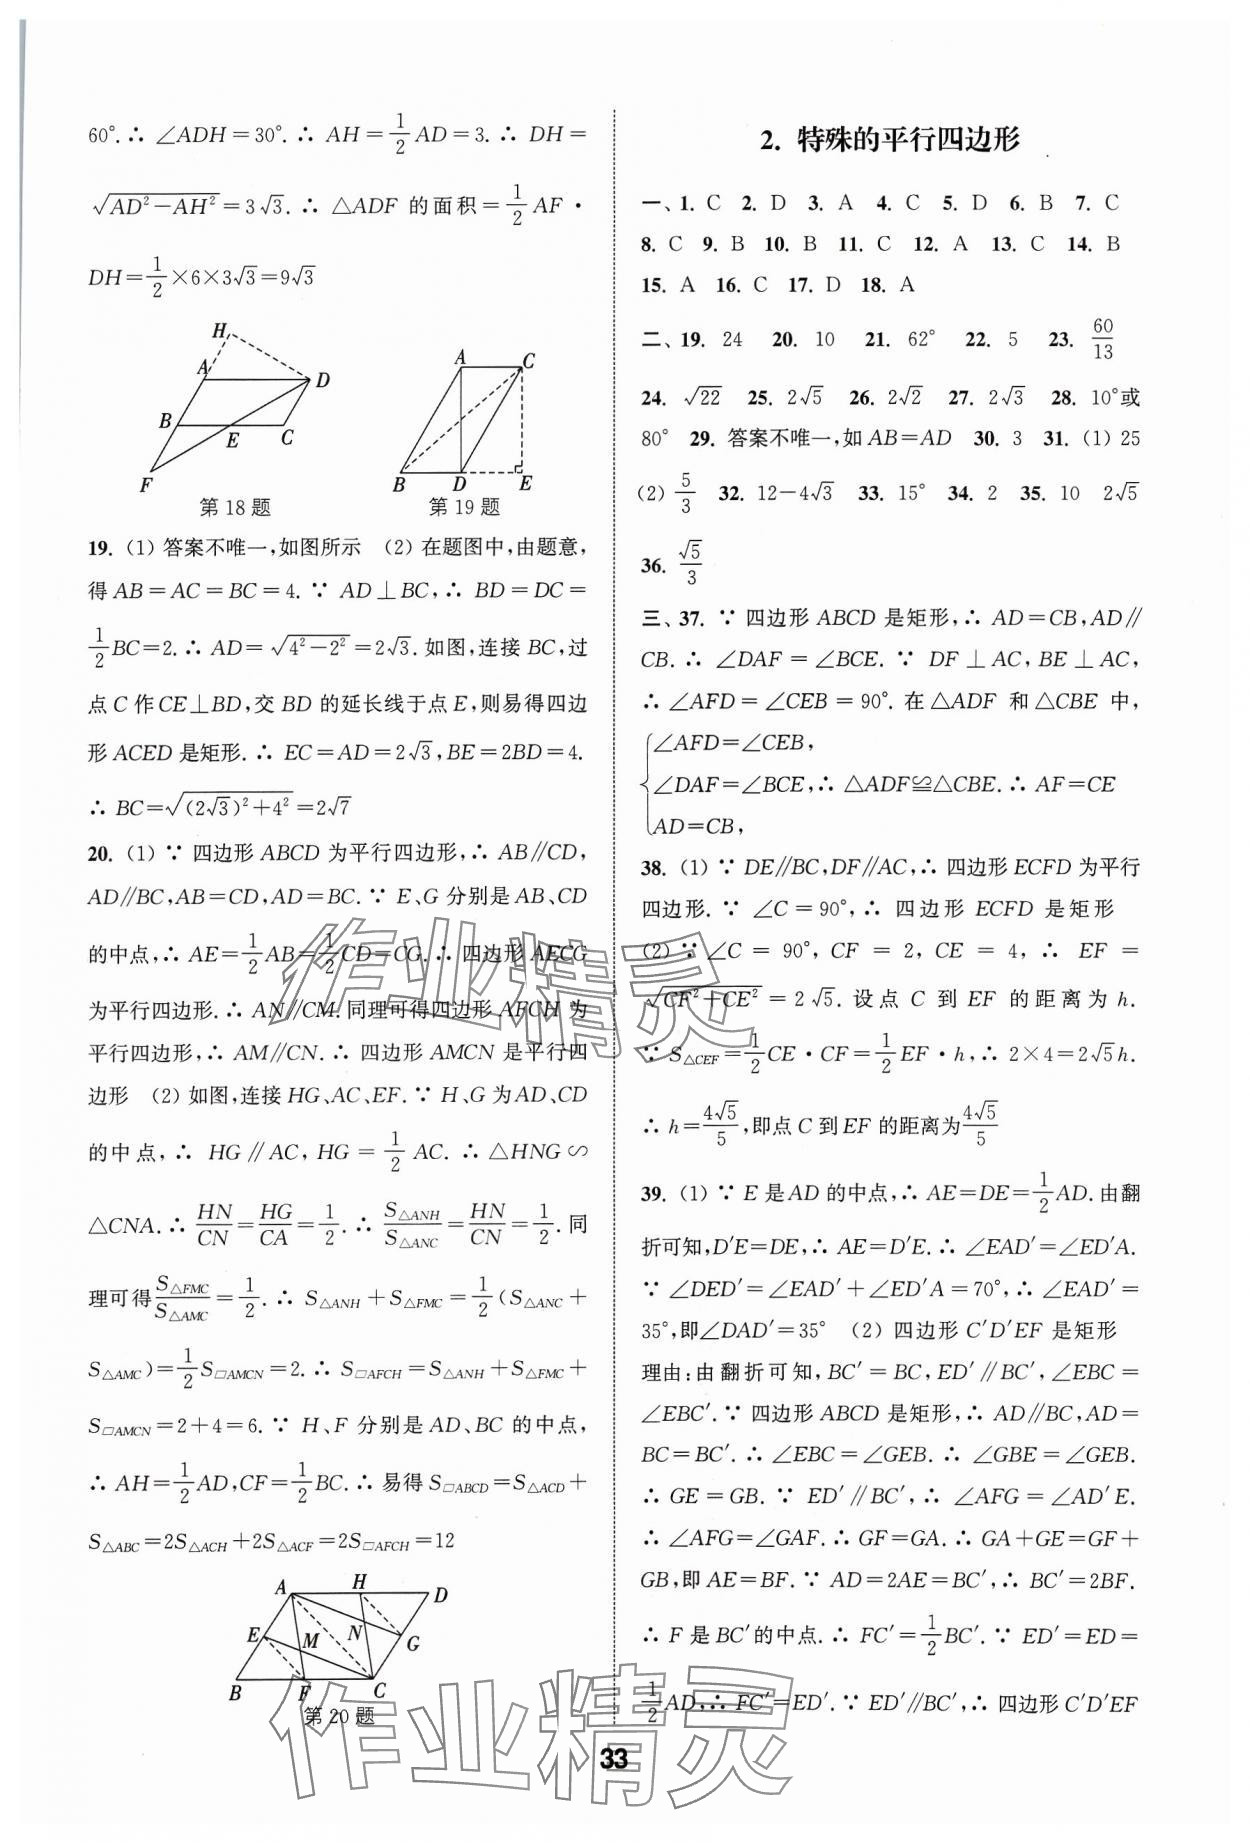 60°.∴ ∠ADH=30°.∴ AH=1/2AD=3.∴ DH=
√(AD²-AH²)=3√3.∴ △ADF 的面积=1/2AF·
DH=1/2×6×3√3=9√3
H
A
D
B
E
C
F
第18题
A
C
B
D
E
第19题
19. (1) 答案不唯一,如图所示 (2) 在题图中,由题意,
得AB=AC=BC=4.∵ AD⊥BC,∴ BD=DC=
1/2BC=2.∴ AD=√(4²-2²)=2√3.如图,连接BC,过
点C作CE⊥BD,交BD的延长线于点E,则易得四边
形ACED是矩形.∴ EC=AD=2√3,BE=2BD=4.
∴ BC=√((2√3)²+4²)=2√7
20. (1) ∵ 四边形ABCD为平行四边形,∴ AB∥CD,
AD∥BC,AB=CD,AD=BC.∵ E、G分别是AB、CD
的中点,∴ AE=1/2AB=1/2CD=CG.∴ 四边形AECG
为平行四边形.∴ AN∥CM.同理可得四边形AFCH为
平行四边形,∴ AM∥CN.∴ 四边形AMCN是平行四
边形 (2) 如图,连接HG、AC、EF.∵ H、G为AD、CD
的中点,∴ HG∥AC,HG=1/2AC.∴ △HNG∽
△CNA.∴ HN/CN=HG/CA=1/2.∴ S△ANH/S△ANC=HN/CN=1/2.同
理可得S△FMC/S△AMC=1/2.∴ S△ANH+S△FMC=1/2(S△ANC+
S△AMC)=1/2S▱AMCN=2.∴ S▱AFCH=S△ANH+S△FMC+
S▱AMCN=2+4=6.∵ H、F分别是AD、BC的中点,
∴ AH=1/2AD,CF=1/2BC.∴ 易得S▱ABCD=S△ACD+
S△ABC=2S△ACH+2S△ACF=2S▱AFCH=12
A
H
D
E
M
N
G
B
F
C
第20题
2. 特殊的平行四边形
一、1. C 2. D 3. A 4. C 5. D 6. B 7. C
8. C 9. B 10. B 11. C 12. A 13. C 14. B
15. A 16. C 17. D 18. A
二、19. 24 20. 10 21. 62° 22. 5 23. 60/13
24. √22 25. 2√5 26. 2√2 27. 2√3 28. 10°或
80° 29. 答案不唯一,如AB=AD 30. 3 31. (1) 25
(2) 5/3 32. 12-4√3 33. 15° 34. 2 35. 10 2√5
36. √5/3
三、37. ∵ 四边形ABCD是矩形,∴ AD=CB,AD∥
CB.∴ ∠DAF=∠BCE.∵ DF⊥AC,BE⊥AC,
∴ ∠AFD=∠CEB=90°.在△ADF和△CBE中,
∠AFD=∠CEB,
∠DAF=∠BCE,∴ △ADF≌△CBE.∴ AF=CE
AD=CB,
38. (1) ∵ DE∥BC,DF∥AC,∴ 四边形ECFD为平行
四边形.∵ ∠C=90°,∴ 四边形ECFD是矩形
(2) ∵ ∠C=90°,CF=2,CE=4,∴ EF=
√(CF²+CE²)=2√5.设点C到EF的距离为h.
∵ S△CEF=1/2CE·CF=1/2EF·h,∴ 2×4=2√5h.
∴ h=4√5/5,即点C到EF的距离为4√5/5
39. (1) ∵ E是AD的中点,∴ AE=DE=1/2AD.由翻
折可知,D′E=DE,∴ AE=D′E.∴ ∠EAD′=∠ED′A.
∵ ∠DED′=∠EAD′+∠ED′A=70°,∴ ∠EAD′=
35°,即∠DAD′=35° (2) 四边形C′D′EF是矩形
理由:由翻折可知,BC′=BC,ED′∥BC′,∠EBC=
∠EBC′.∵ 四边形ABCD是矩形,∴ AD∥BC,AD=
BC=BC′.∴ ∠EBC=∠GEB.∴ ∠GBE=∠GEB.
∴ GE=GB.∵ ED′∥BC′,∴ ∠AFG=∠AD′E.
∴ ∠AFG=∠GAF.∴ GF=GA.∴ GA+GE=GF+
GB,即AE=BF.∵ AD=2AE=BC′,∴ BC′=2BF.
∴ F是BC′的中点.∴ FC′=1/2BC′.∵ ED′=ED=
1/2AD,∴ FC′=ED′.∵ ED′∥BC′,∴ 四边形C′D′EF
33
作业精灵
作业精灵